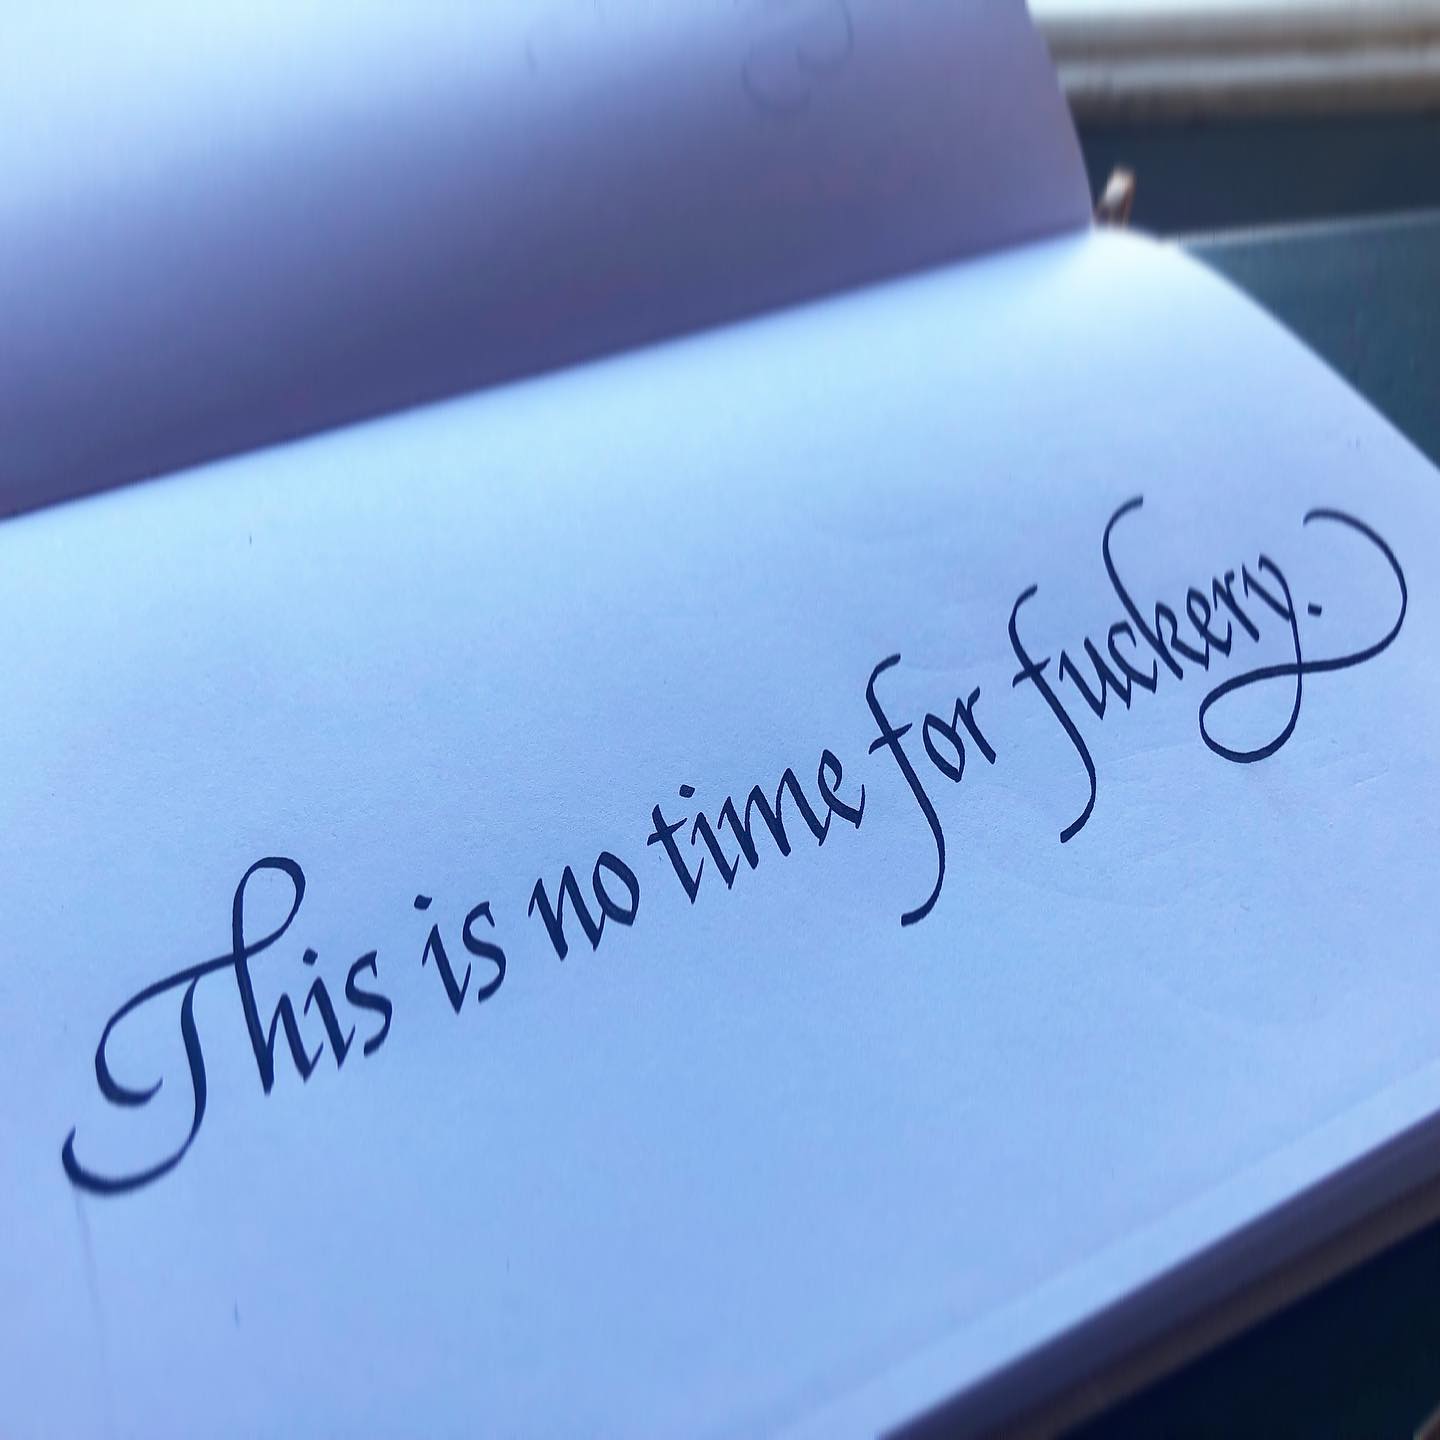 This is no time for fuckery.